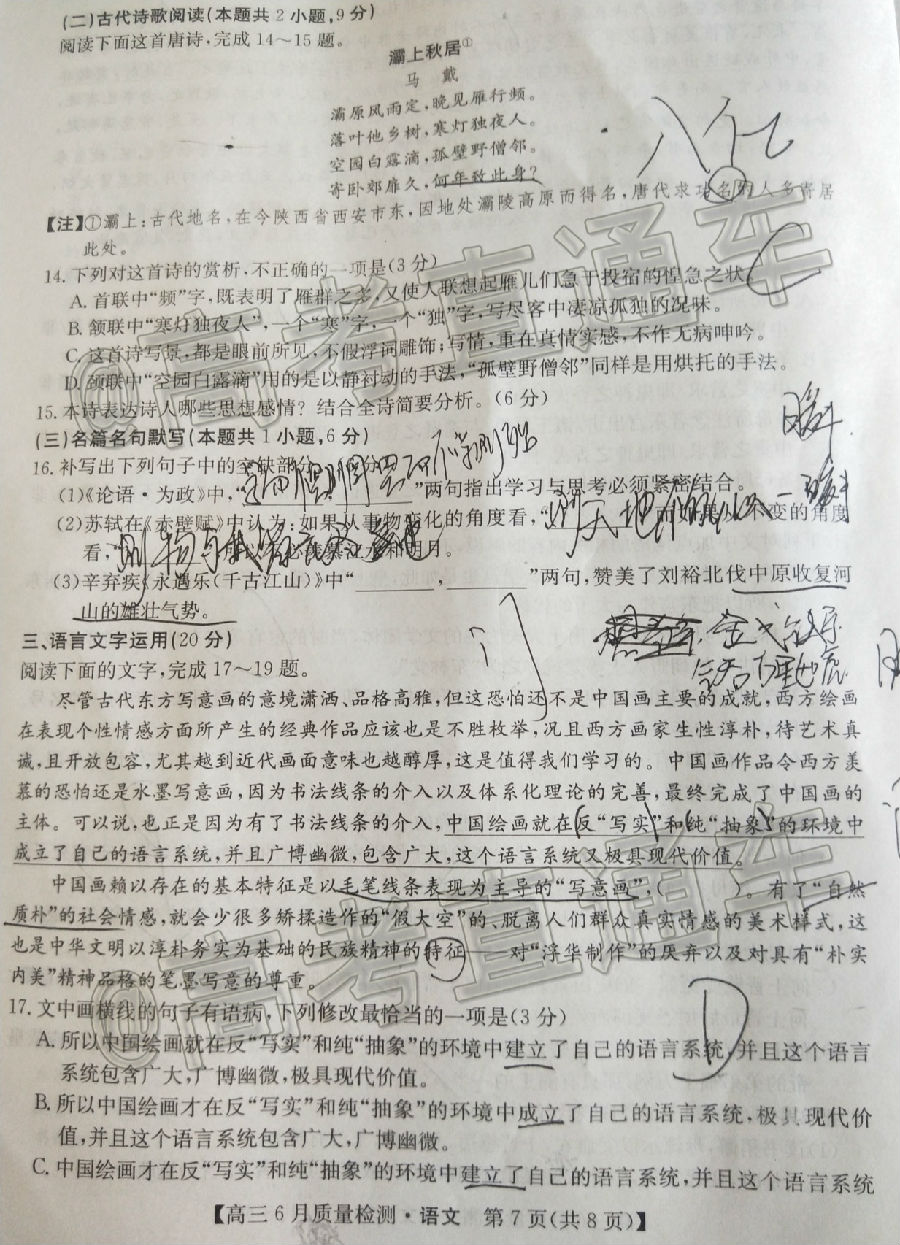 (二)古代诗歌阅读(本题共2小题,9分)
阅读下面这首唐诗,完成14～15题。
灞上秋居①
马 戴
灞原风雨定,晚见雁行频。
落叶他乡树,寒灯独夜人。
空园白露滴,孤壁野僧邻。
寄卧郊扉久,何年致此身?
【注】①灞上:古代地名,在今陕西省西安市东,因地处灞陵高原而得名,唐代求功名的人多寄居
此处。
14.下列对这首诗的赏析,不正确的一项是(3分)
C
A.首联中“频”字,既表明了雁群之多,又使人联想起雁儿们急于投宿的惶急之状。
B.颔联中“寒灯独夜人”,一个“寒”字,一个“独”字,写尽客中凄凉孤独的况味。
C.这首诗写景,都是眼前所见,不假浮词雕饰;写情,重在真情实感,不作无病呻吟。
D.颈联中“空园白露滴”用的是以静衬动的手法,“孤壁野僧邻”同样是用烘托的手法。
15.本诗表达诗人哪些思想感情? 结合全诗简要分析。(6分)
(三)名篇名句默写(本题共1小题,6分)
16.补写出下列句子中的空缺部分。
(1)《论语·为政》中,“ ”两句指出学习与思考必须紧密结合。
(2)苏轼在《赤壁赋》中认为:如果从事物变化的角度看,“ 不变的角度
看,“
(3)辛弃疾《永遇乐(千古江山)》中“ , ”两句,赞美了刘裕北伐中原收复河
山的雄壮气势。
三、语言文字运用(20分)
阅读下面的文字,完成17～19题。
尽管古代东方写意画的意境潇洒、品格高雅,但这恐怕还不是中国画主要的成就,西方绘画
在表现个性情感方面所产生的经典作品应该也是不胜枚举,况且西方画家生性淳朴,待艺术真
诚,且开放包容,尤其越到近代画面意味也越醇厚,这是值得我们学习的。中国画作品令西方羡
慕的恐怕还是水墨写意画,因为书法线条的介入以及体系化理论的完善,最终完成了中国画的
主体。可以说,也正是因为有了书法线条的介入,中国绘画就在反“写实”和纯“抽象”的环境中
成立了自己的语言系统,并且广博幽微,包含广大,这个语言系统又极具现代价值。
中国画赖以存在的基本特征是以毛笔线条表现为主导的“写意画”,( )。有了“自然
质朴”的社会情感,就会少很多矫揉造作的“假大空”的、脱离人们群众真实情感的美术样式,这
也是中华文明以淳朴务实为基础的民族精神的特征——对“浮华制作”的厌弃以及对具有“朴实
内美”精神品格的笔墨写意的尊重。
17.文中画横线的句子有语病,下列修改最恰当的一项是(3分)
D
A.所以中国绘画就在反“写实”和纯“抽象”的环境中建立了自己的语言系统,并且这个语言
系统包含广大,广博幽微,极具现代价值。
B.所以中国绘画才在反“写实”和纯“抽象”的环境中成立了自己的语言系统,极具现代价
值,并且这个语言系统包含广大,广博幽微。
C.中国绘画才在反“写实”和纯“抽象”的环境中建立了自己的语言系统,并且这个语言系统
【高三6月质量检测·语文 第7页(共8页)】
@高考直通车
@高考直通车